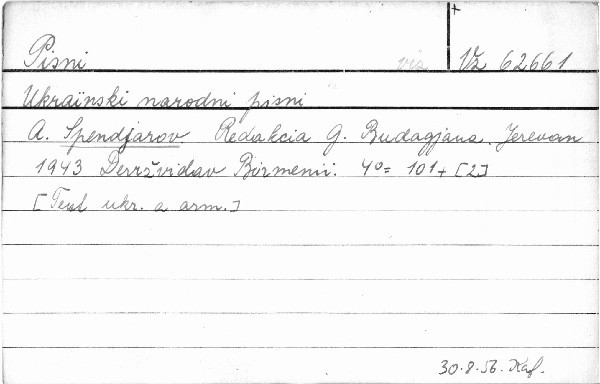 Pisni viz Vz 62661
Ukraïnski narodni pisni
A. Spendjarov. Redakcia G. Budagjana. Jerevan
1943 Deržvidav Birmenii. 4°= 101+[2]
[Text ukr. a arm.]
30.8.56. Kaf.